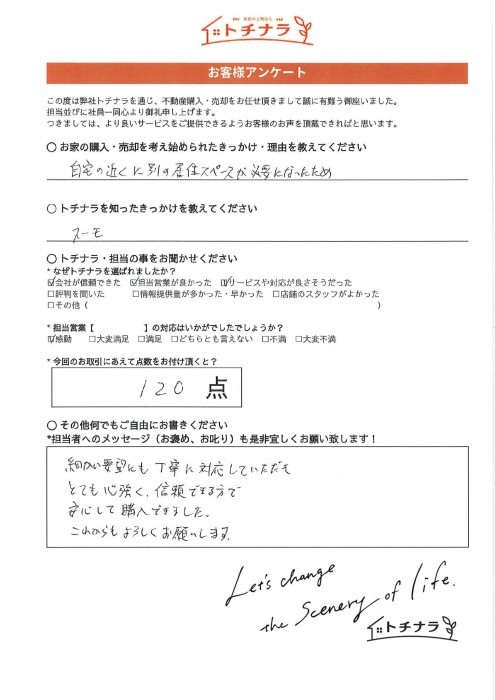 トチナラ
お客様アンケート
この度は弊社トチナラを通じ、不動産購入・売却をお任せ頂きまして誠に有難う御座いました。
担当並びに社員一同心より御礼申し上げます。
つきましては、より良いサービスをご提供できるようお客様のお声を頂戴できればと思います。
○ お家の購入・売却を考え始められたきっかけ・理由を教えてください
自宅の近くに別の居住スペースが必要になったため
○ トチナラを知ったきっかけを教えてください
スーモ
○ トチナラ・担当の事をお聞かせください
* なぜトチナラを選ばれましたか？
☑会社が信頼できた ☑担当営業が良かった ☑サービスや対応が良さそうだった
□評判を聞いた □情報提供量が多かった・早かった □店舗のスタッフがよかった
□その他（ ）
* 担当営業【 】の対応はいかがでしたでしょうか？
☑感動 □大変満足 □満足 □どちらとも言えない □不満 □大変不満
* 今回のお取引にあえて点数をお付け頂くと？
120 点
○ その他何でもご自由にお書きください
*担当者へのメッセージ（お褒め、お叱り）も是非宜しくお願い致します！
細かい要望にも丁寧に対応していただき
とても心強く、信頼できる方で
安心して購入できました。
これからもよろしくお願いします。
Let's change
the Scenery of life.
トチナラ